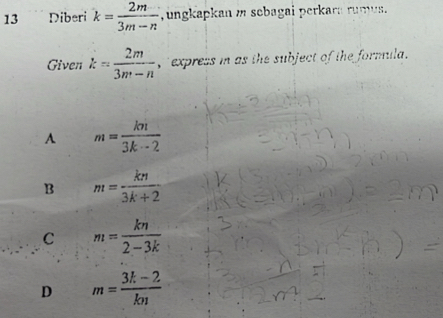 13 Diberi k = 2m / 3m − n, ungkapkan m sebagai perkara rumus.
Given k = 2m / 3m − n, express m as the subject of the formula.
A m = kn / 3k − 2
B m = kn / 3k + 2
C m = kn / 2 − 3k
D m = 3k − 2 / kn